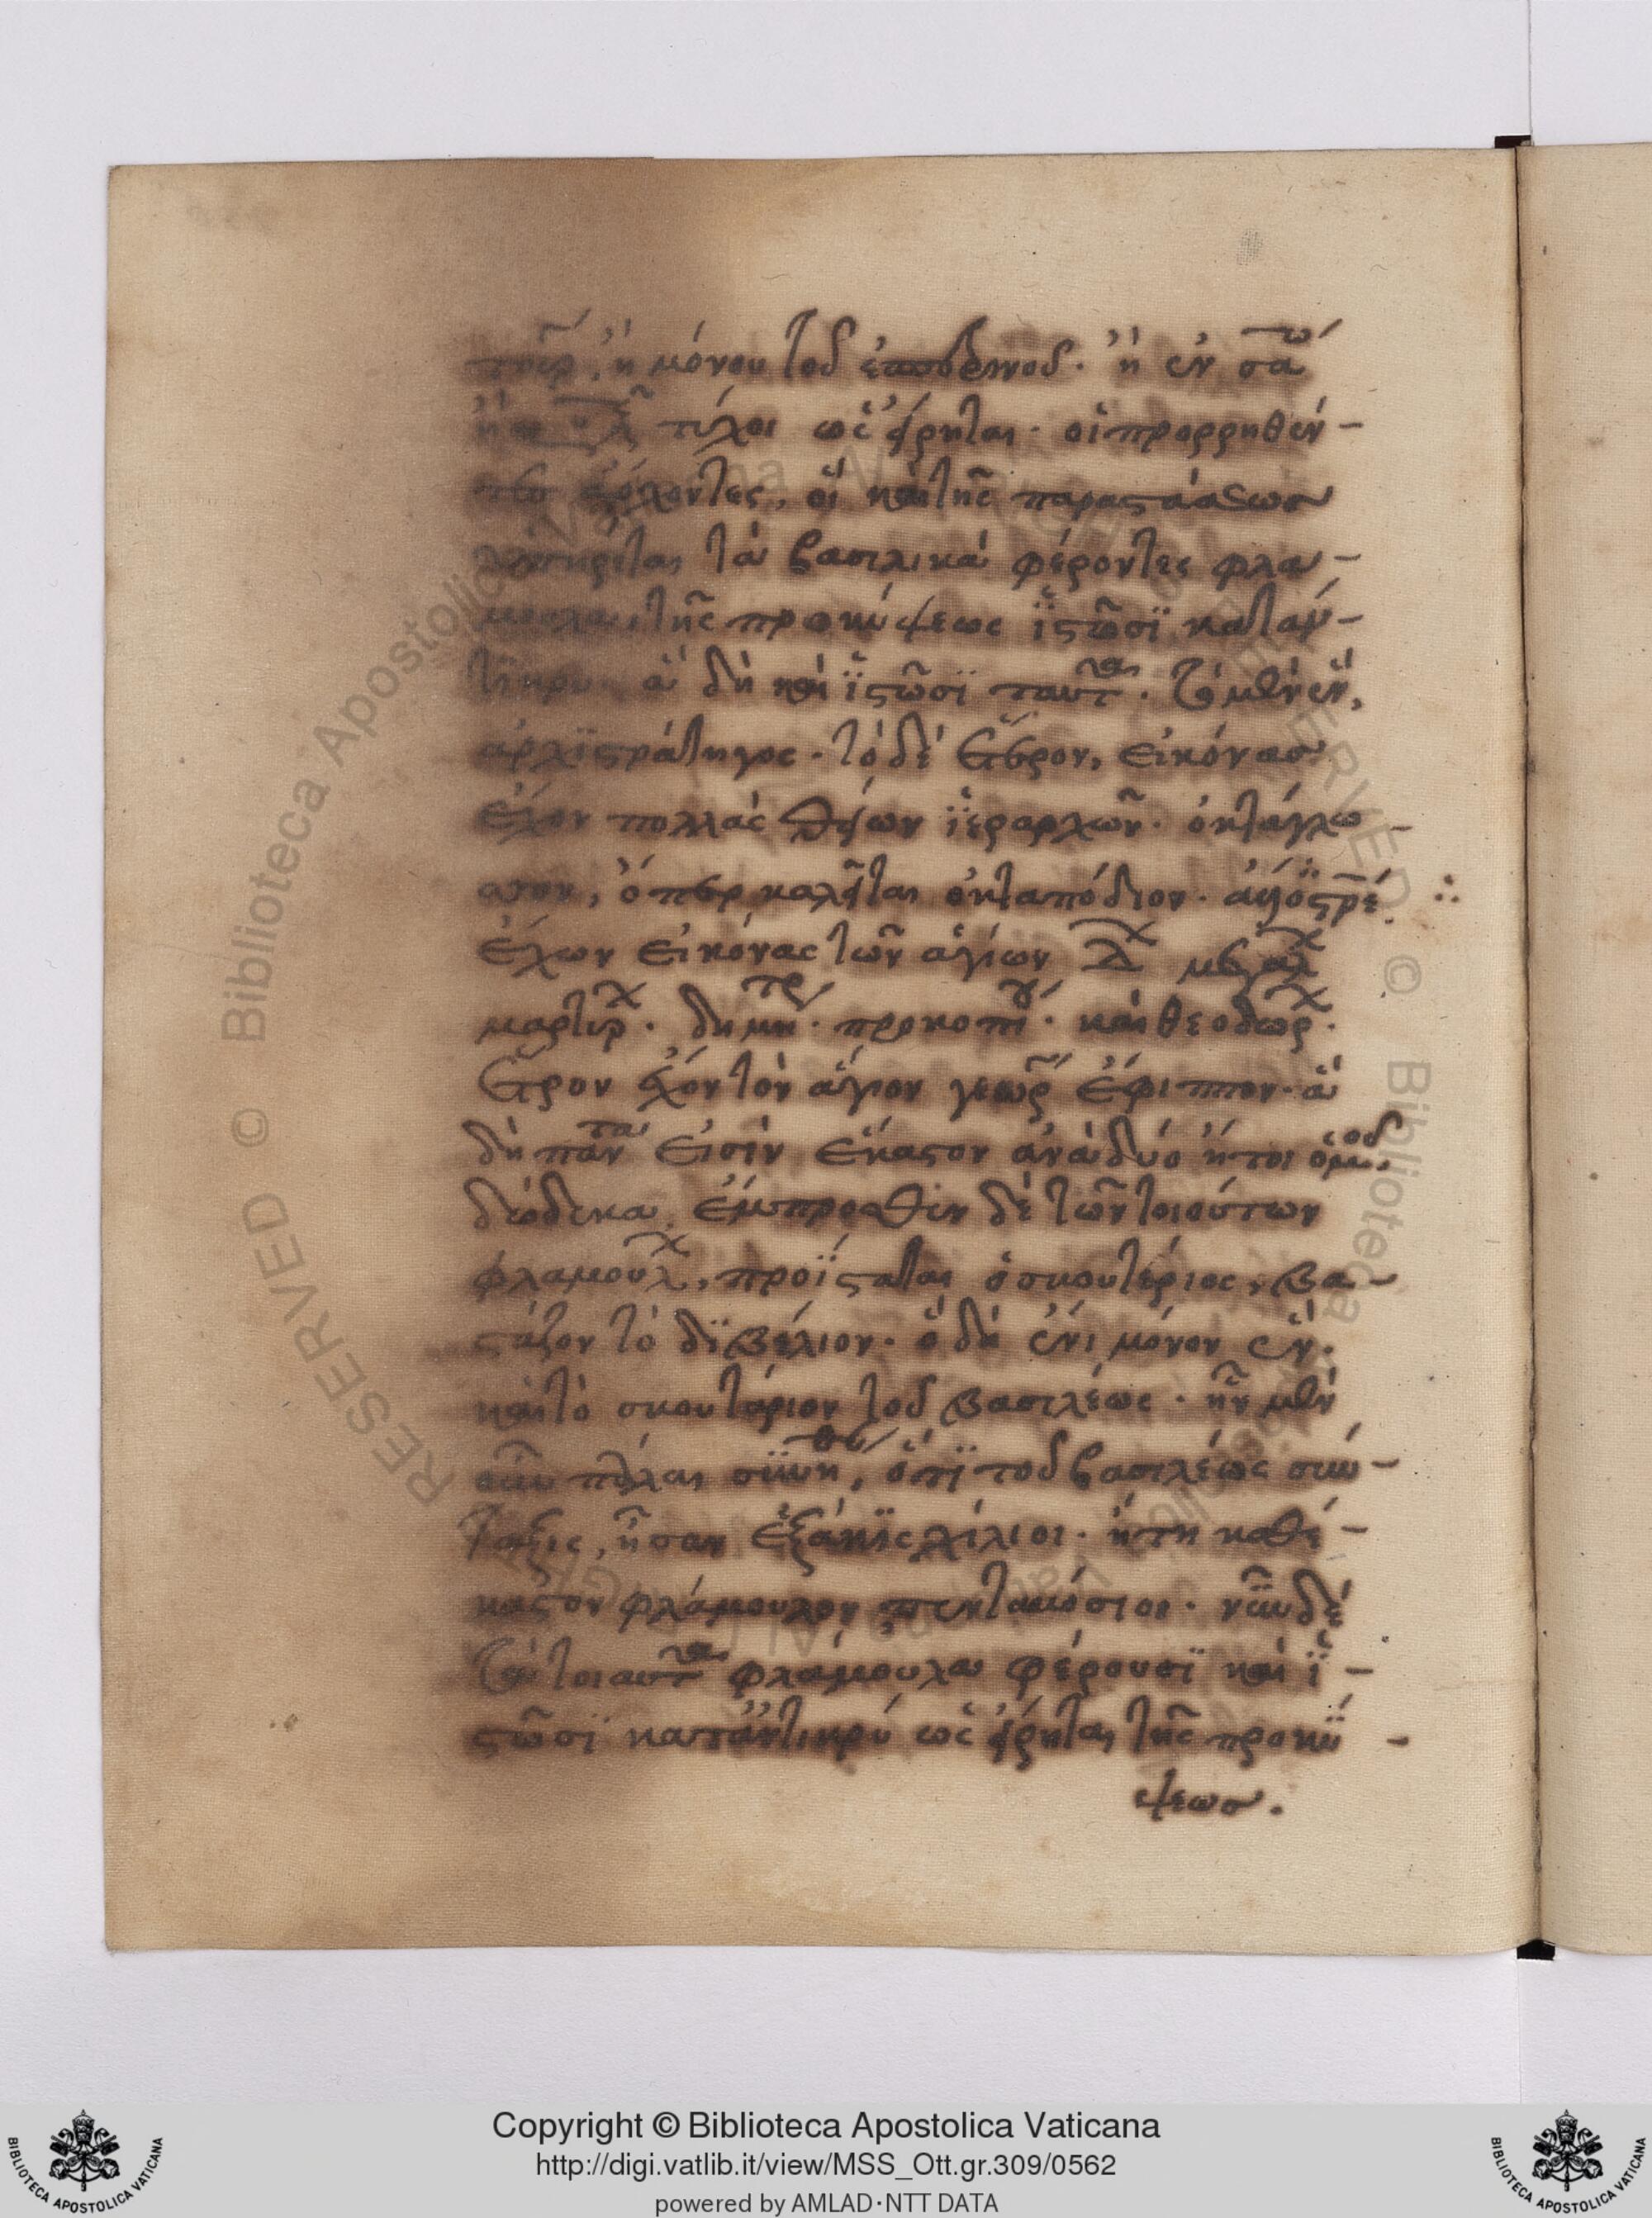 ἢ μόνου τοῦ ἑσπερινοῦ. ἢ ἐν σα
τύχοι ὡς εἴρηται. οἱ προρρηθέν-
ἄρχοντες, οἱ καὶ τῆς παραστάσεως
τὰ βασιλικὰ φέροντες φλα-
μουλα, τῆς προκύψεως ἵστῶσϊ καταν-
τικρυ. ἃ δὴ καὶ ἵστῶσϊ ταῦτα. τὸ μὲν ἓν,
ἀρχϊστράτηγος. τὸ δὲ ἕτερον, εἰκόνας
ἔχον πολλὰς θείων ἱεραρχῶν. ὀκτάγλω-
σσον, ὅπερ καλεῖται ὀκταπόδιον.
ἔχων εἰκόνας τῶν ἁγίων Δ μεγαλ
μαρτύρ. δημητρ. προκοπίου. καὶ θεοδώρ.
ἕτερον ἔχον τὸν ἅγιον γεώρ ἔφιππον. ἃ
δὴ πάντα εἰσὶν ἕκαστον ἀνὰ δύο ἤτοι ὁμοῦ
δώδεκα. ἔμπροσθεν δὲ τῶν τοιούτων
φλαμούλ, προΐσταται ὁ σκουτέριος, βα-
στάζον τὸ δϊβέλιον. ὃ δὴ ἔνι μόνον ἕν.
καὶ τὸ σκουτάριον τοῦ βασιλέως. ἦν μὲν
οὖν πάλαι συνήθει, ὅτϊ τοῦ βασιλέως σύν-
ταξις, ἦσαν ἑξάκϊς χίλιοι. ἤτη καθέ-
καστον φλάμουλον πεντακόσιοι. νῦν δὲ
τὰ τοιαῦτα φλάμουλα φέρουσϊ καὶ ἵ-
στῶσϊ καταντικρύ ὡς εἴρηται τῆς προκύ-
ψεως.
Copyright © Biblioteca Apostolica Vaticana
http://digi.vatlib.it/view/MSS_Ott.gr.309/0562
powered by AMLAD·NTT DATA